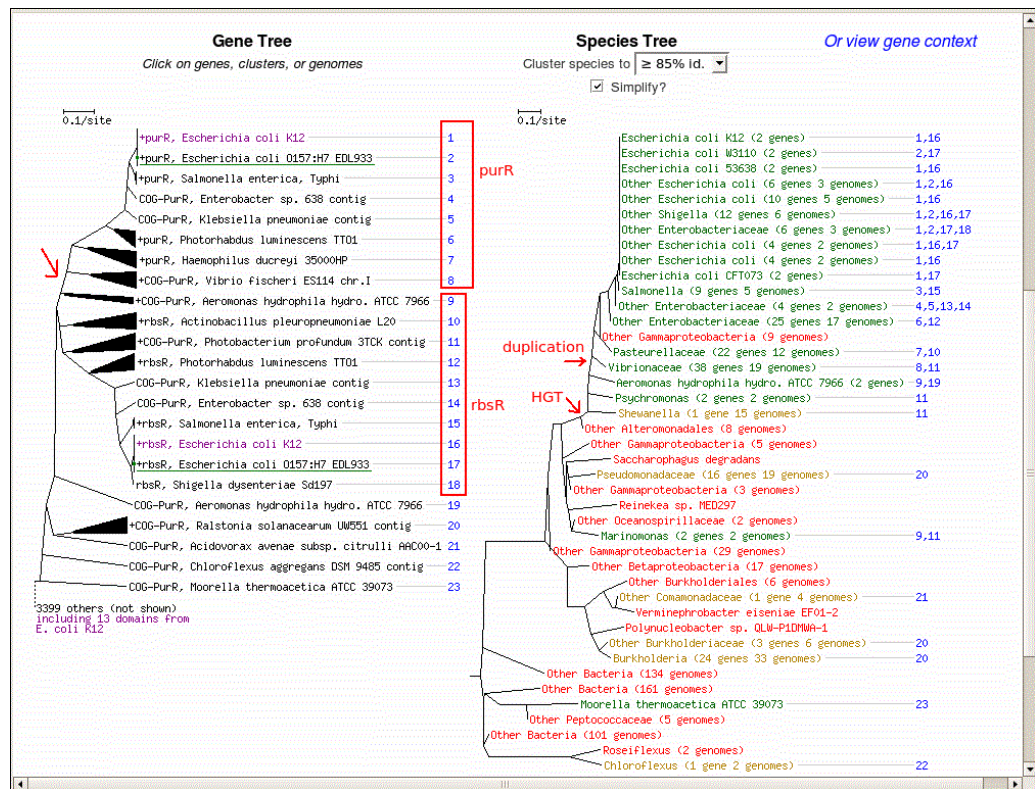 Gene Tree
Click on genes, clusters, or genomes
0.1/site
+purR, Escherichia coli K12 1
+purR, Escherichia coli O157:H7 EDL933 2
+purR, Salmonella enterica, Typhi 3
COG-PurR, Enterobacter sp. 638 contig 4
COG-PurR, Klebsiella pneumoniae contig 5
+purR, Photorhabdus luminescens TTO1 6
+purR, Haemophilus ducreyi 35000HP 7
+COG-PurR, Vibrio fischeri ES114 chr.I 8
+COG-PurR, Aeromonas hydrophila hydro. ATCC 7966 9
+rbsR, Actinobacillus pleuropneumoniae L20 10
+COG-PurR, Photobacterium profundum 3TCK contig 11
+rbsR, Photorhabdus luminescens TTO1 12
COG-PurR, Klebsiella pneumoniae contig 13
COG-PurR, Enterobacter sp. 638 contig 14
+rbsR, Salmonella enterica, Typhi 15
+rbsR, Escherichia coli K12 16
+rbsR, Escherichia coli O157:H7 EDL933 17
rbsR, Shigella dysenteriae Sd197 18
COG-PurR, Aeromonas hydrophila hydro. ATCC 7966 19
+COG-PurR, Ralstonia solanacearum UW551 contig 20
COG-PurR, Acidovorax avenae subsp. citrulli AAC00-1 21
COG-PurR, Chloroflexus aggregans DSM 9485 contig 22
COG-PurR, Moorella thermoacetica ATCC 39073 23
3399 others (not shown)
including 13 domains from
E. coli K12
purR
rbsR
Species Tree
Cluster species to ≥ 85% id.
Simplify?
Or view gene context
0.1/site
Escherichia coli K12 (2 genes) 1,16
Escherichia coli W3110 (2 genes) 2,17
Escherichia coli 53638 (2 genes) 1,16
Other Escherichia coli (6 genes 3 genomes) 1,2,16
Other Escherichia coli (10 genes 5 genomes) 1,16
Other Shigella (12 genes 6 genomes) 1,2,16,17
Other Enterobacteriaceae (6 genes 3 genomes) 1,2,17,18
Other Escherichia coli (4 genes 2 genomes) 1,16,17
Escherichia coli CFT073 (2 genes) 1,17
Salmonella (9 genes 5 genomes) 3,15
Other Enterobacteriaceae (4 genes 2 genomes) 4,5,13,14
Other Enterobacteriaceae (25 genes 17 genomes) 6,12
Other Gammaproteobacteria (9 genomes)
Pasteurellaceae (22 genes 12 genomes) 7,10
Vibrionaceae (38 genes 19 genomes) 8,11
Aeromonas hydrophila hydro. ATCC 7966 (2 genes) 9,19
Psychromonas (2 genes 2 genomes) 11
Shewanella (1 gene 15 genomes) 11
Other Alteromonadales (8 genomes)
Other Gammaproteobacteria (5 genomes)
Saccharophagus degradans
Pseudomonadaceae (16 genes 19 genomes) 20
Other Gammaproteobacteria (3 genomes)
Reinekea sp. MED297
Other Oceanospirillaceae (2 genomes)
Marinomonas (2 genes 2 genomes) 9,11
Other Gammaproteobacteria (29 genomes)
Other Betaproteobacteria (17 genomes)
Other Burkholderiales (6 genomes)
Other Comamonadaceae (1 gene 4 genomes) 21
Verminephrobacter eiseniae EF01-2
Polynucleobacter sp. QLW-P1DMWA-1
Other Burkholderiaceae (3 genes 6 genomes) 20
Burkholderia (24 genes 33 genomes) 20
Other Bacteria (134 genomes)
Other Bacteria (161 genomes)
Moorella thermoacetica ATCC 39073 23
Other Peptococcaceae (5 genomes)
Other Bacteria (101 genomes)
Roseiflexus (2 genomes)
Chloroflexus (1 gene 2 genomes) 22
duplication
HGT